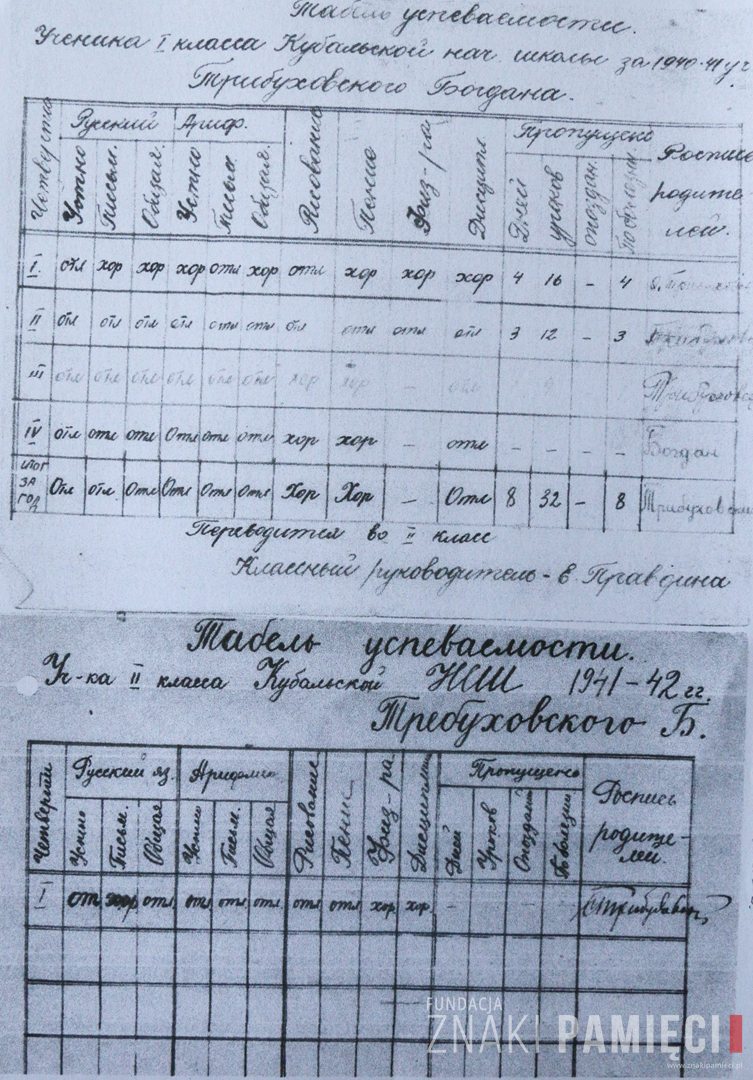 Табель успеваемости.
Ученика I класса Кубальской нач. школы за 1940-41 уч
Трибуховского Богдана.
Четверть Русский Ариф. Рисование Пение Физ-ра Дисципл. Пропущено Роспись родителей.
Устно Письм. Общая. Устно Письм. Общая. Дней уроков опоздан.
I отл хор хор хор отл хор отл хор хор хор 4 16 - 4
II отл отл отл отл отл отл отл отл отл отл 3 12 - 3
III отл отл отл отл отл отл хор хор - отл
IV отл отл отл отл отл отл хор хор - отл - - - - Богдан
итог за год Отл отл Отл Отл Отл Отл Хор Хор - Отл 8 32 - 8 Трибуховский
Переводится во II класс
Классный руководитель - Е. Правдина
Табель успеваемости.
Уч-ка II класса Кубальской НСШ 1941-42 гг.
Требуховского Б.
Четверти Русский яз. Арифмет. Рисование Пение Физ-ра Дисциплин Пропущено Роспись родителей.
Устно Письм. Общая Устно Письм. Общая Дней Уроков Опозданий По болезни
I отл хор отл отл отл отл отл отл хор хор - - - -
FUNDACJA
ZNAKI PAMIĘCI
www.znakipamieci.pl